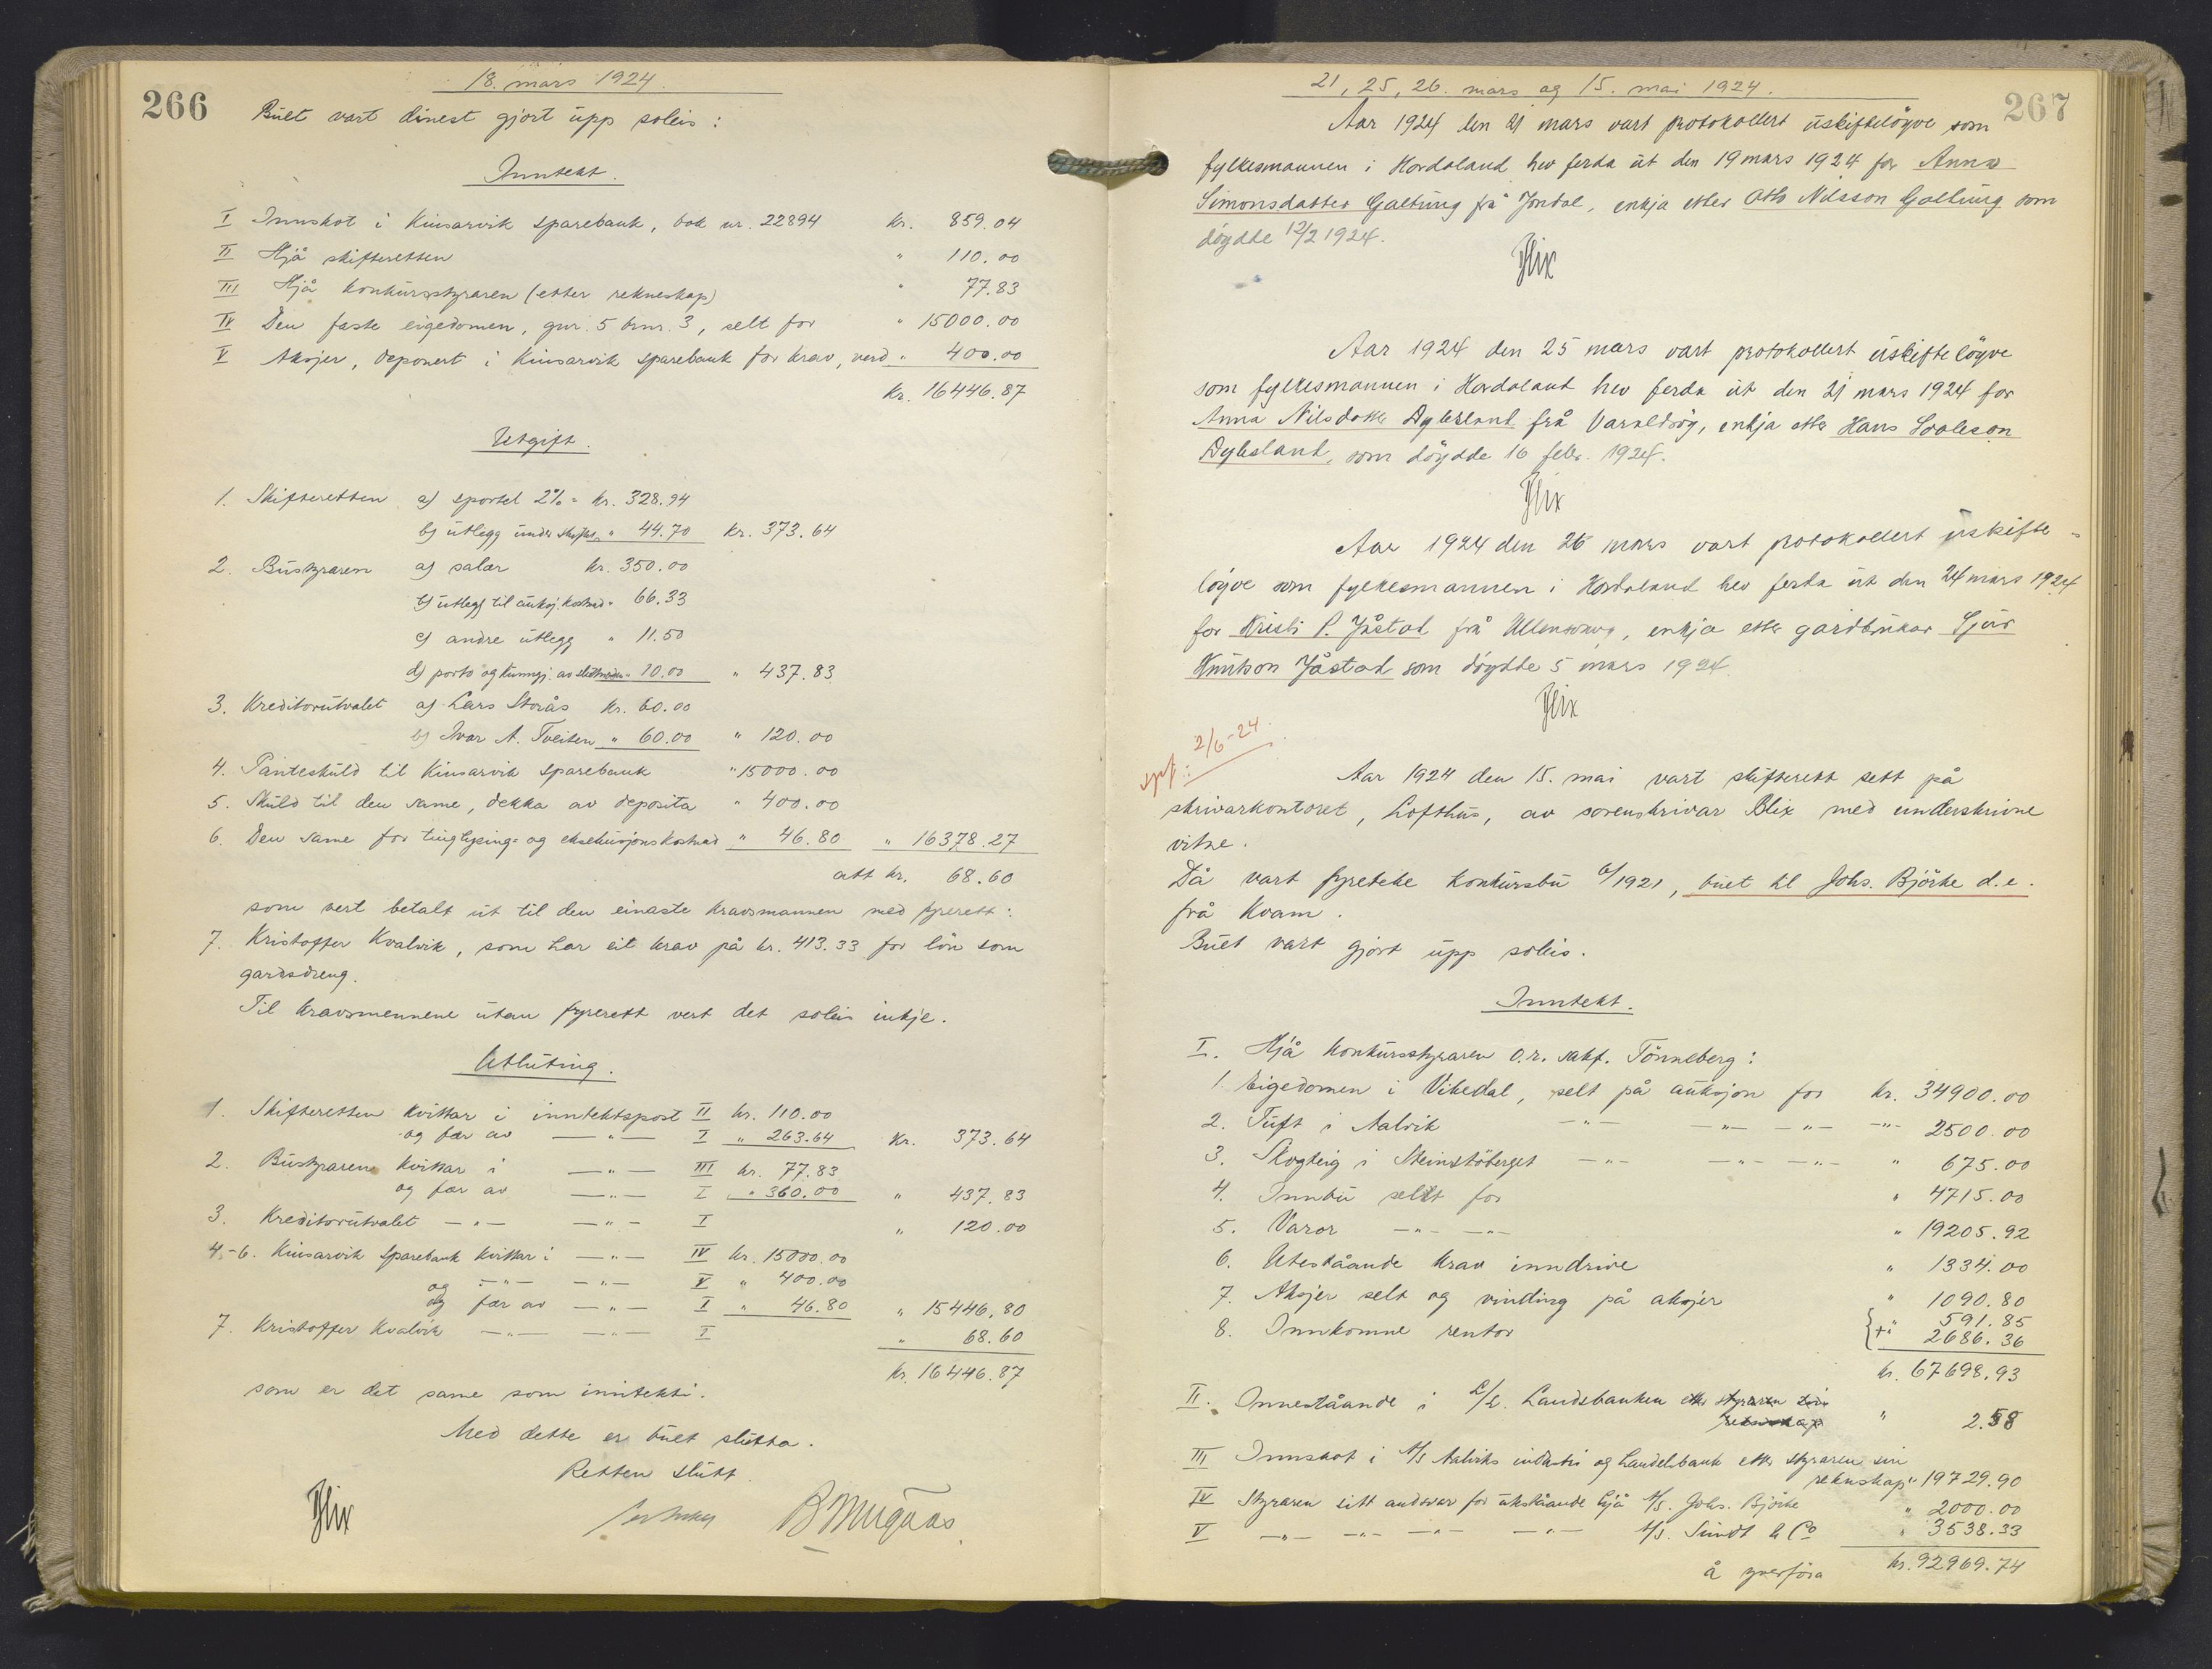 266
18. mars 1924.
Buet vart dinest gjort upp soleis:
Inntekt.
I Innskot i Kinsarvik sparebank, bok nr. 22894 kr. 859.04
II Hjå skifteretten " 110.00
III Hjå konkursstyraren (etter rekneskap) " 77.83
IV Den faste eigedomen, gnr. 5 brnr. 3, selt for " 15000.00
V Aksjer, deponert i Kinsarvik sparebank for krav, verd " 400.00
Kr. 16446.87
Utgift.
1. Skifteretten a) sportel 2% = kr. 328.94
b) utlegg under skiftet " 44.70 kr. 373.64
2. Bustyraren a) salær kr. 350.00
b) utlegg til auksj. kostnad " 66.33
c) andre utlegg " 11.50
d) porto og kunngj. av slutningen " 10.00 " 437.83
3. Kreditorutvalet a) Lars Storås kr. 60.00
b) Ivar A. Tveiten " 60.00 " 120.00
4. Panteskuld til Kinsarvik sparebank " 15000.00
5. Skuld til den same, dekka av deposita " 400.00
6. Den same for tinglysing- og eksekusjonskostnad " 46.80 " 16378.27
att kr. 68.60
som vert betalt ut til den einaste kravsmannen med fyrerett:
7. Kristoffer Kvalvik, som har eit krav på kr. 413.33 for lön som
gardsdreng.
Til kravsmennene utan fyrerett vert det soleis inkje.
Utluting.
1. Skifteretten kvittar i inntektspost II kr. 110.00
og fær av — " — I " 263.64 Kr. 373.64
2. Bustyraren kvittar i — " — III kr. 77.83
og fær av — " — I " 360.00 " 437.83
3. Kreditorutvalet — " — — " — I " 120.00
4.-6. Kinsarvik sparebank kvittar i — " — IV kr. 15000.00
og — " — — " — V " 400.00
og fær av — " — I " 46.80 " 15446.80
7. Kristoffer Kvalvik — " — — " — I " 68.60
kr. 16446.87
som er det same som inntekti.
Med dette er buet slutta.
Retten slutt.
Blix
B Mugaas.
267
21, 25, 26. mars og 15. mai 1924.
Aar 1924 den 21 mars vart protokollert uskiftelöyve som
fylkesmannen i Hordaland hev ferda ut den 19 mars 1924 for Anna
Simonsdatter Galtung frå Jondal, enkja etter Otto Nilsson Galtung som
döydde 12/2 1924.
Blix
Aar 1924 den 25 mars vart protokollert uskiftelöyve
som fylkesmannen i Hordaland hev ferda ut den 21 mars 1924 for
Anna Nilsdotter Dybesland frå Varaldsöy, enkja etter Hans
Dybesland, som döydde 16 febr. 1924.
Blix
Aar 1924 den 26 mars vart protokollert uskifte-
löyve som fylkesmannen i Hordaland hev ferda ut den 24 mars 1924
for Kristi P. Jåstad frå Ullensvang, enkja etter gardbrukar Sjur
Knutson Jåstad som döydde 5 mars 1924.
Blix
2/6-24.
Aar 1924 den 15. mai vart skifterett sett på
skrivarkontoret, Lofthus, av sorenskrivar Blix med underskrivne
vitne.
Då vart fyreteke konkursbu 6/1921, buet til Johs. Björke d.e.
frå Kvam.
Buet vart gjort upp soleis.
Inntekt.
I. Hjå konkursstyraren o.r. sakf. Tönneberg:
1. Eigedomen i Vikedal, selt på auksjon for kr. 34900.00
2. Tuft i Aalvik — " — — " — — " — — " — 2500.00
3. Skogteig i Steinstöberget — " — — " — — " — " 675.00
4. Innbu selt for " 4715.00
5. Varor — " — — " — " 19205.92
6. Uteståande krav inndrive " 1334.00
7. Aksjer selt og vinding på aksjer " 1090.80
8. Innkomne rentor { + " 591.85
2686.36
kr. 67698.93
II. Inneståande i A/S. Landsbanken etter styraren sin
rekneskap " 2.58
III Innskot i A/S Aalviks industri og handelsbank etter styraren sin
rekneskap " 19729.90
IV Styraren sitt andsvar for uteståande hjå A/S. Johs. Björke " 2000.00
V — " — — " — — " — — " — A/S. Sundt & Co " 3538.33
å yverföra kr. 92969.74